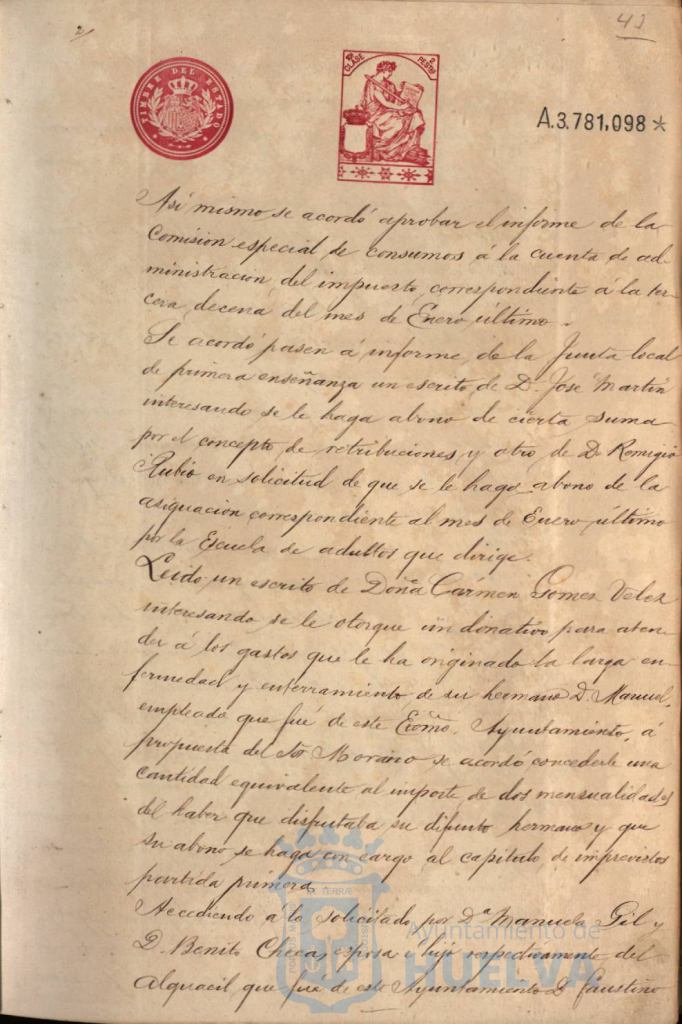 2/
41
TIMBRE DEL ESTADO
10ª CLASE 2 PESTAS
A.3.781,098*
Asi mismo se acordó aprobar el informe de la
Comision especial de consumos á la cuenta de ad-
ministracion del impuesto, correspondiente á la ter-
cera decena del mes de Enero último.
Se acordó pasen á informe de la Junta local
de primera enseñanza un escrito de D. José Martin
interesando se le haga abono de cierta suma
por el concepto de retribuciones y otro de D. Remigio
Rubio en solicitud de que se le haga abono de la
asignacion correspondiente al mes de Enero último
por la Escuela de adultos que dirige.
Leido un escrito de Doña Cármen Gomez Velez
interesando se le otorgue un donativo para aten-
der á los gastos que le ha originado la larga en-
fermedad y enterramiento de su hermano D. Manuel,
empleado que fué de este Excmo. Ayuntamiento, á
propuesta del Sr. Morano se acordó concederle una
cantidad equivalente al importe de dos mensualidades
del haber que disfrutaba su difunto hermano y que
su abono se haga con cargo al capitulo de imprevistos
partida primera.
Accediendo á lo solicitado por Dª Manuela Gil y
D. Benito Checa, esposa é hijo respectivamente del
Alguacil que fué de este Ayuntamiento D. Faustino
Ayuntamiento de
HUELVA